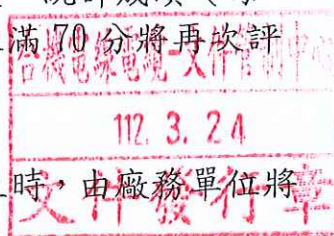 滿 70 分將再次評
台機電線電纜-文件管制中心
112. 3. 24
時，由廠務單位將
文件發行章